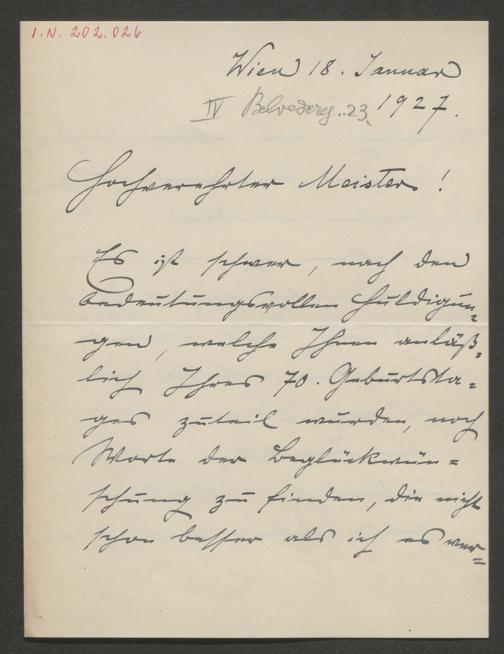 I.N. 202.026
Wien 18. Januar
IV Belvedereg. 23. 1927.
Hochverehrter Meister!
Es ist schwer, nach den
bedeutungsvollen Huldigun=
gen, welche Ihnen anläß=
lich Ihres 70. Geburtsta=
ges zuteil wurden, noch
Worte der Beglückwün=
schung zu finden, die nicht
schon besser als ich es ver=